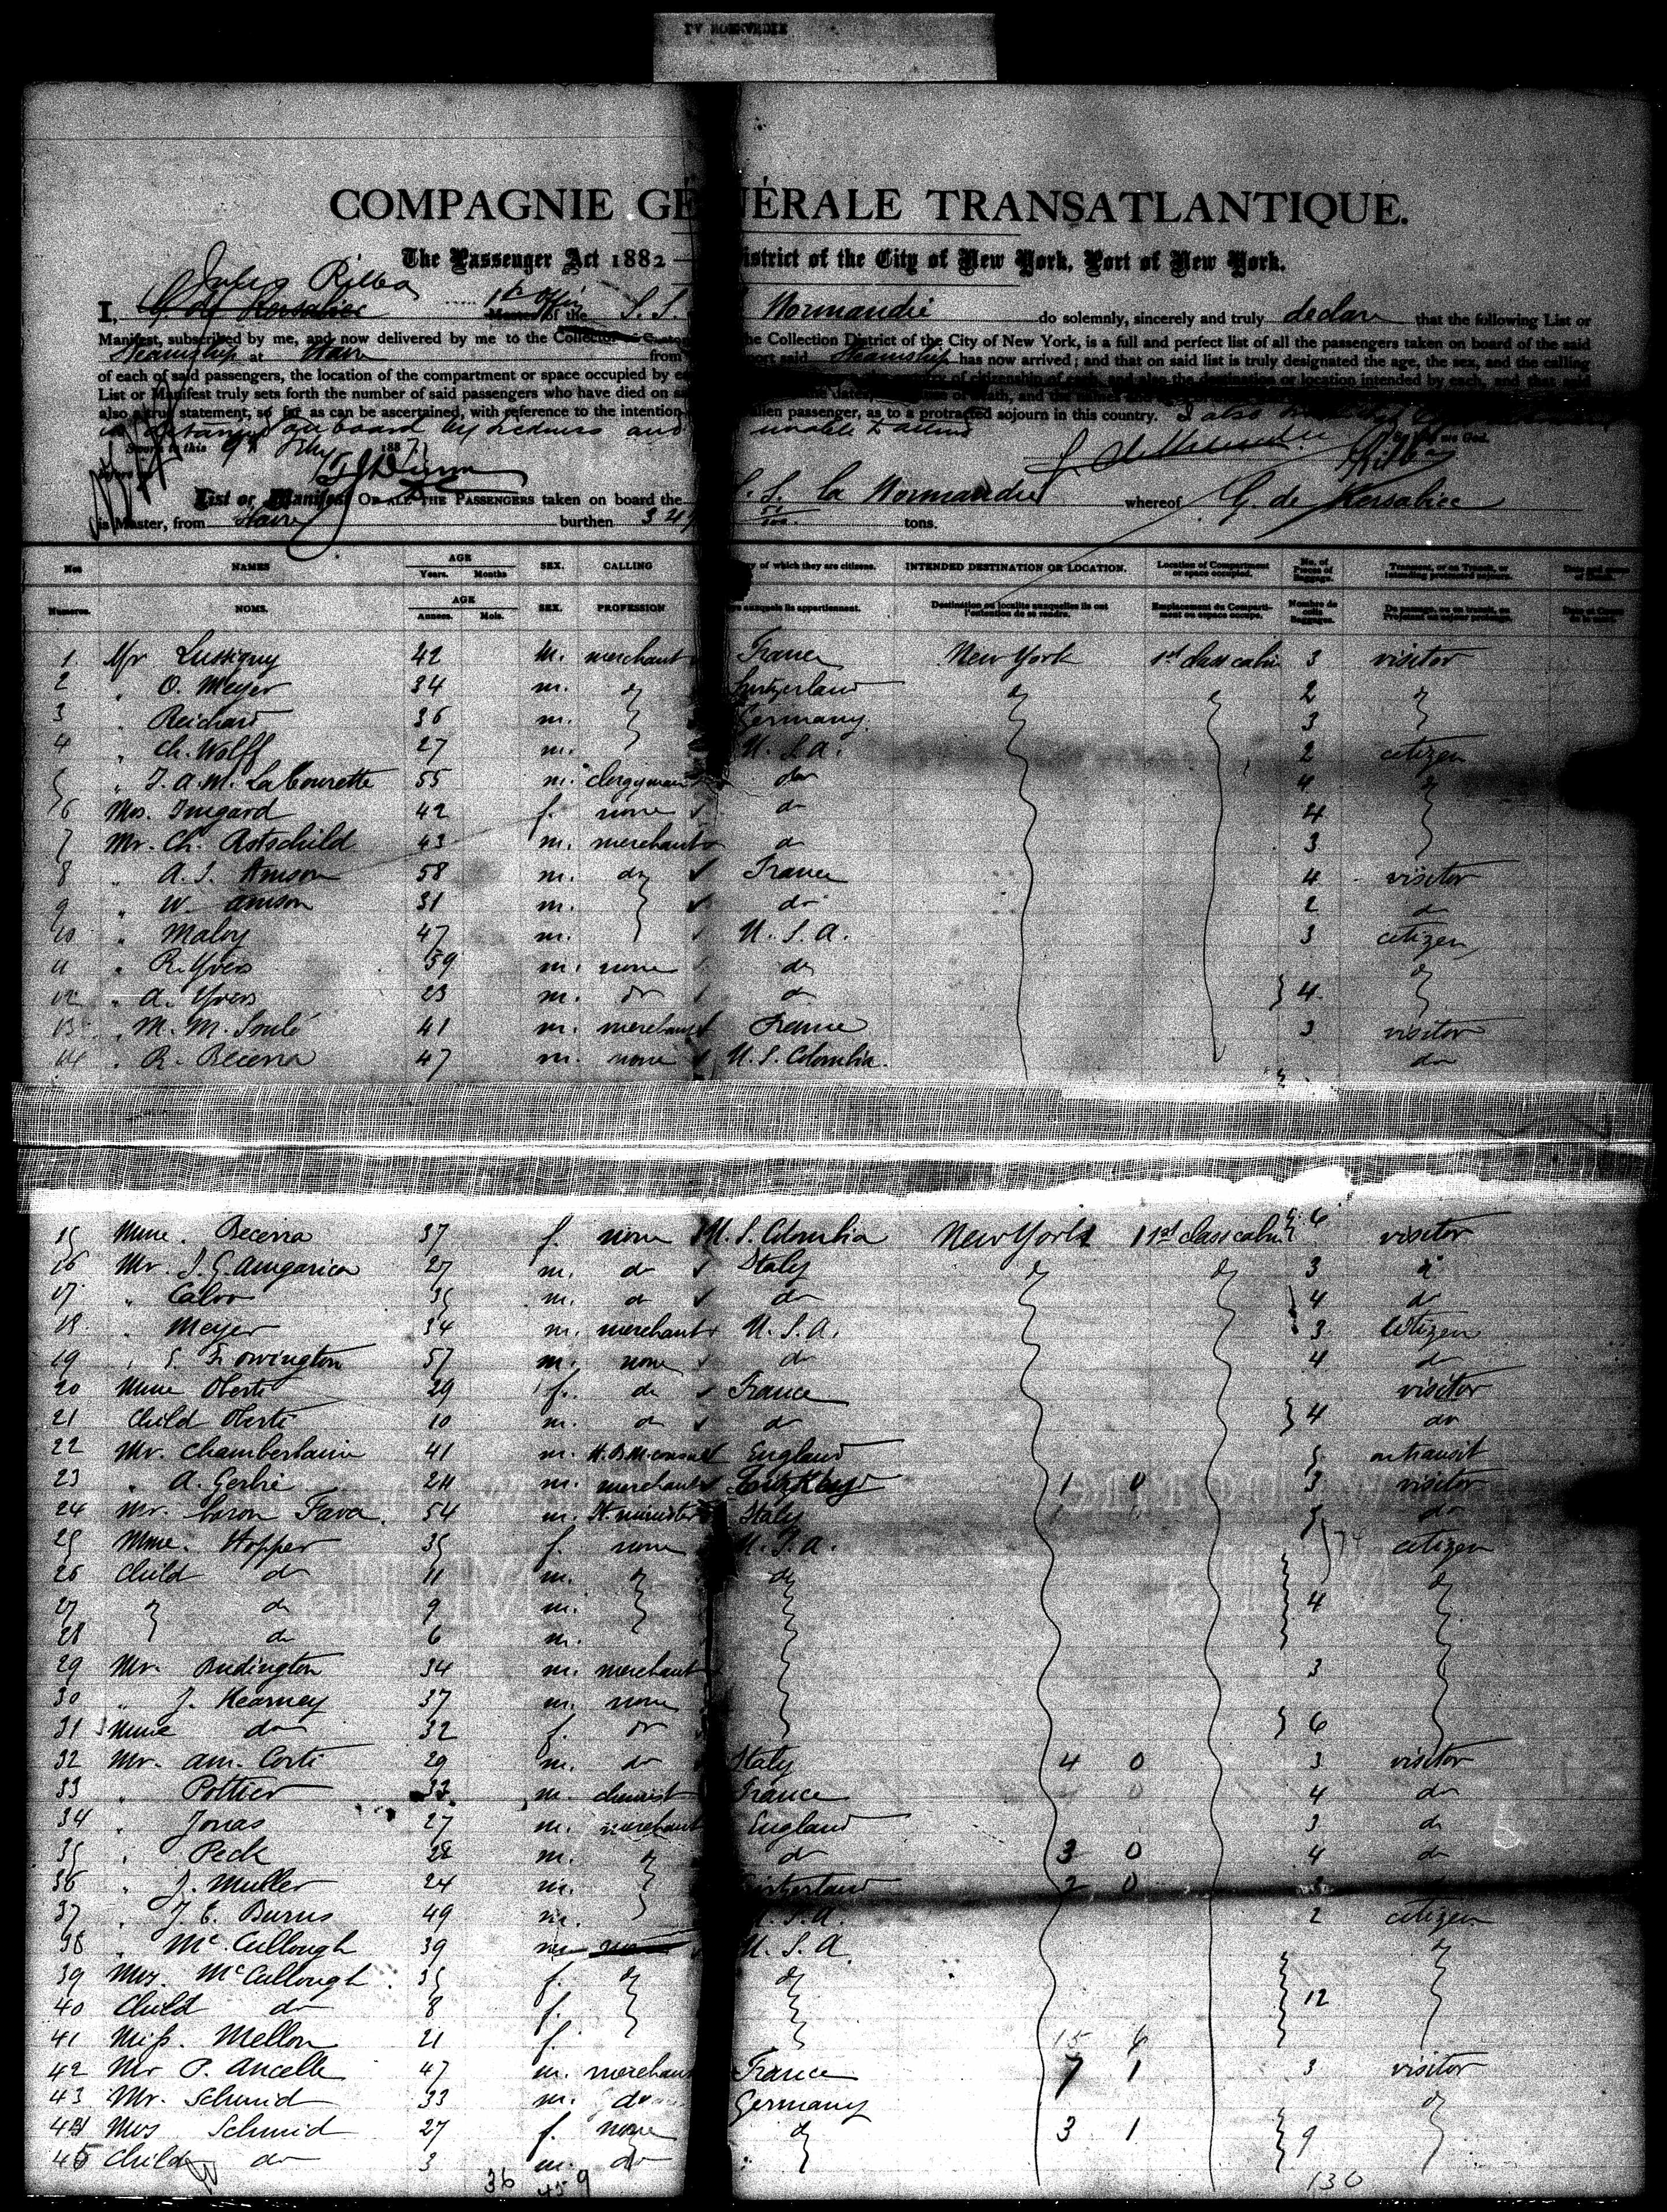 COMPAGNIE GÉNÉRALE TRANSATLANTIQUE.
The Passenger Act 1882 — District of the City of New York, Port of New York.
Jules Rilba
I, G. de Kersabiec 1st Offi Master of the S.S. Normandie do solemnly, sincerely and truly declare that the following List or
Manifest, subscribed by me, and now delivered by me to the Collector of Customs the Collection District of the City of New York, is a full and perfect list of all the passengers taken on board of the said
Steamship at Havre from port said Steamship has now arrived; and that on said list is truly designated the age, the sex, and the calling
of each of said passengers, the location of the compartment or space occupied by of citizenship of each, and also the destination or location intended by each, and that said
List or Manifest truly sets forth the number of said passengers who have died on the dates, of death, and the names
also a true statement, so far as can be ascertained, with reference to the intention alien passenger, as to a protracted sojourn in this country. I also
on board by and unable to attend
Sworn to this 9th 1887 me God.
List or Manifest OF ALL THE PASSENGERS taken on board the S.S. la Normandie whereof G. de Kersabiec
is Master, from Havre burthen 34 tons.
Nos NAMES AGE Years. Months SEX. CALLING of which they are citizens. INTENDED DESTINATION OR LOCATION. Location of Compartment or space occupied. No. of Pieces of Baggage. Transient, or on Transit, or intending protracted sojourn. Date and cause of Death.
Numeros. NOMS. AGE Années. Mois. SEX. PROFESSION auxquels ils appartiennent. Destination ou localite auxquelles ils ont l'intention de se rendre. Emplacement du Compartiment ou espace occupe. Nombre de colis Baggages. De passage, ou en transit, ou Projetant un sejour prolonge. Date et Cause de la mort.
1. Mr Lussigny 42 m. merchant France New York 1st class cabin 3 visitor
2 " O. Meyer 34 m. do Switzerland do do 2 do
3 " Reichard 36 m. Germany 3
4 " Ch. Wolff 27 m. U.S.A. 2 citizen
5 " J. A. M. La Tourette 55 m. clergyman do 4 do
6 Mrs. Imgard 42 f. none do 4
7 Mr. Ch. Rotschild 43 m. merchant do 3
8 " A. S. Amson 58 m. do France 4 visitor
9 " W. Amson 31 m. do 2 do
10 " Maloy 47 m. U.S.A. 3 citizen
11 " R. Yvers 59 m. none do do
12 " A. Yvers 23 m. do do 4
13 " M. M. Soulé 41 m. merchant France 3 visitor
14 " R. Becerra 47 m. none U.S. Colombia do
15 Mme. Becerra 37 f. none U.S. Colombia New York 1st class cabin 6 visitor
16 Mr. J. G. Amgarica 27 m. do Italy do do 3 do
17 " Calvo 35 m. do do 4 do
18 " Meyer 34 m. merchant U.S.A. 3 Citizen
19 " S. Frowington 57 m. none do 4 do
20 Mme Oberti 29 f. do France visitor
21 Child Oberti 10 m. do do 4 do
22 Mr. Chamberlain 41 m. H.B.M. consul England 5 on transit
23 " A. Gerbié 24 m. merchant 1 0 3 visitor
24 Mr. baron Fava 54 m. It. minister Italy 5 do
25 Mme. Hopper 35 f. none U.S.A. 74 citizen
26 Child do 11 m. do do do
27 do do 9 m. 4
28 do 6 m.
29 Mr. Budington 34 m. merchant 3
30 " J. Kearney 37 m. none
31 Mme do 32 f. do 6
32 Mr. Am. Corti 29 m. do Italy 4 0 3 visitor
33 " Pottier 33 m. chemist France 0 4 do
34 " Jonas 27 m. merchant England 3 do
35 " Peck 28 m. do do 3 0 4 do
36 " J. Muller 24 m. Switzerland 2 0
37 " J. E. Burns 49 m. U.S.A. 2 citizen
38 " Mc. Cullough 39 m. U.S.A do
39 Mrs. McCullough 35 f. do do
40 Child do 8 f. 12
41 Miss. Mellon 21 f. 15 6
42 Mr P. Ancelle 47 m. merchant France 7 1 3 visitor
43 Mr. Schmid 33 m. do Germany do
44 Mrs Schmid 27 f. none do 3 1 9
45 Child do 3 m. do
36 45 9 136